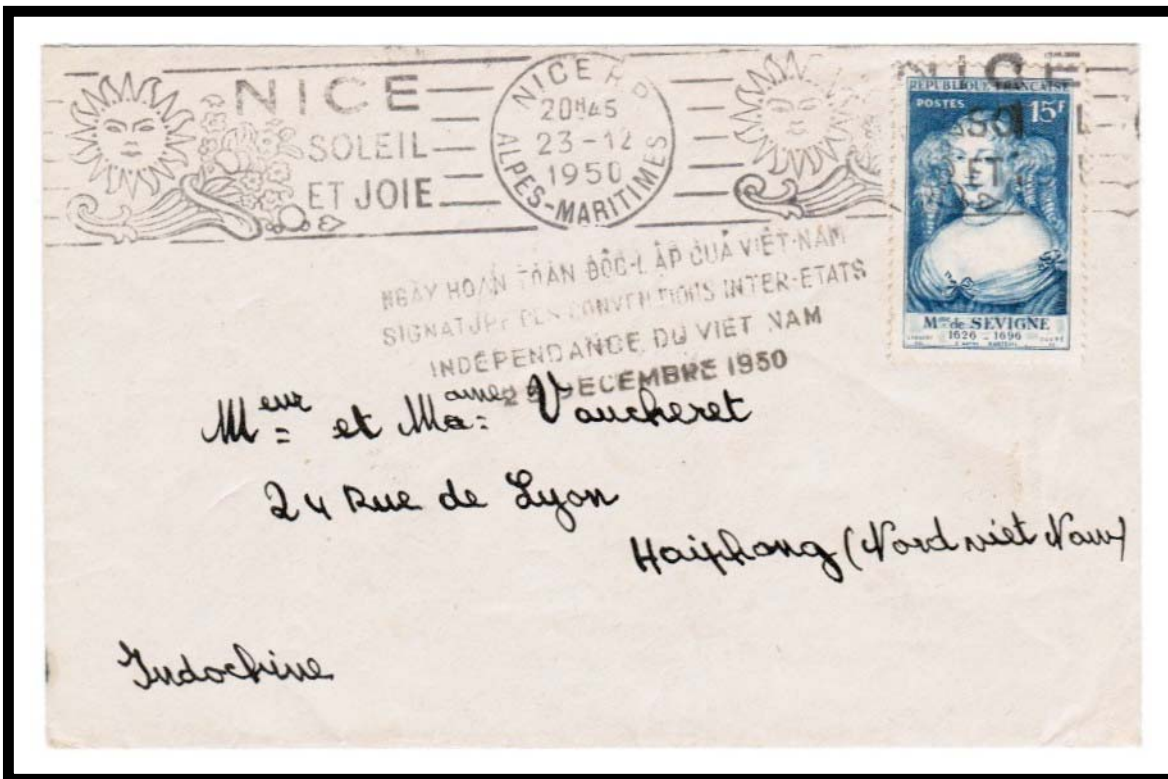 NICE
SOLEIL
ET JOIE
NICE R.P
20H45
23-12
1950
ALPES-MARITIMES
NICE
REPUBLIQUE FRANÇAISE
POSTES 15F
Mme de SEVIGNE
1626 - 1696
NGÀY HOÀN TOÀN ĐÔC-LÂP CUẢ VIÊT-NAM
SIGNATURE DES CONVENTIONS INTER-ETATS
INDÉPENDANCE DU VIET NAM
DECEMBRE 1950
Meur et Madame: Vaucheret
24 Rue de Lyon
Haiphong (Nord viet Nam)
Indochine